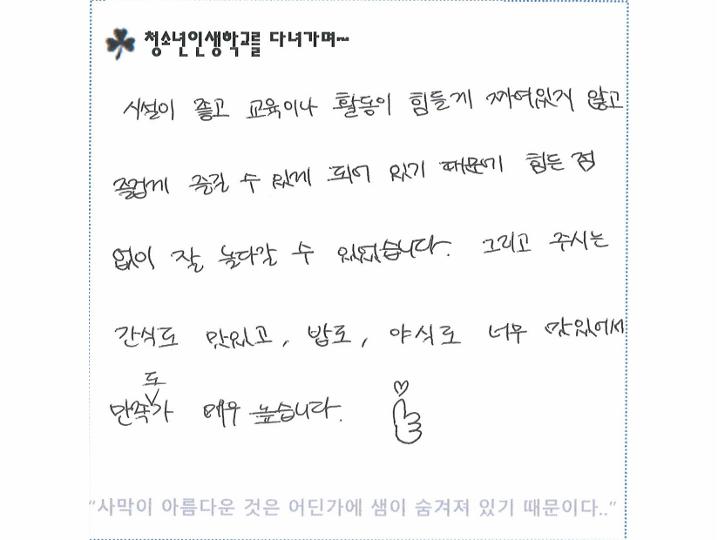 청소년인생학교를 다녀가며~
시설이 좋고 교육이나 활동이 힘들게 짜여있지 않고
즐겁게 즐길 수 있게 되어 있기 때문에 힘든 점
없이 잘 놀다갈 수 있었습니다. 그리고 주시는
간식도 맛있고, 밥도, 야식도 너무 맛있어서
만족도가 매우 높습니다.
“사막이 아름다운 것은 어딘가에 샘이 숨겨져 있기 때문이다..”